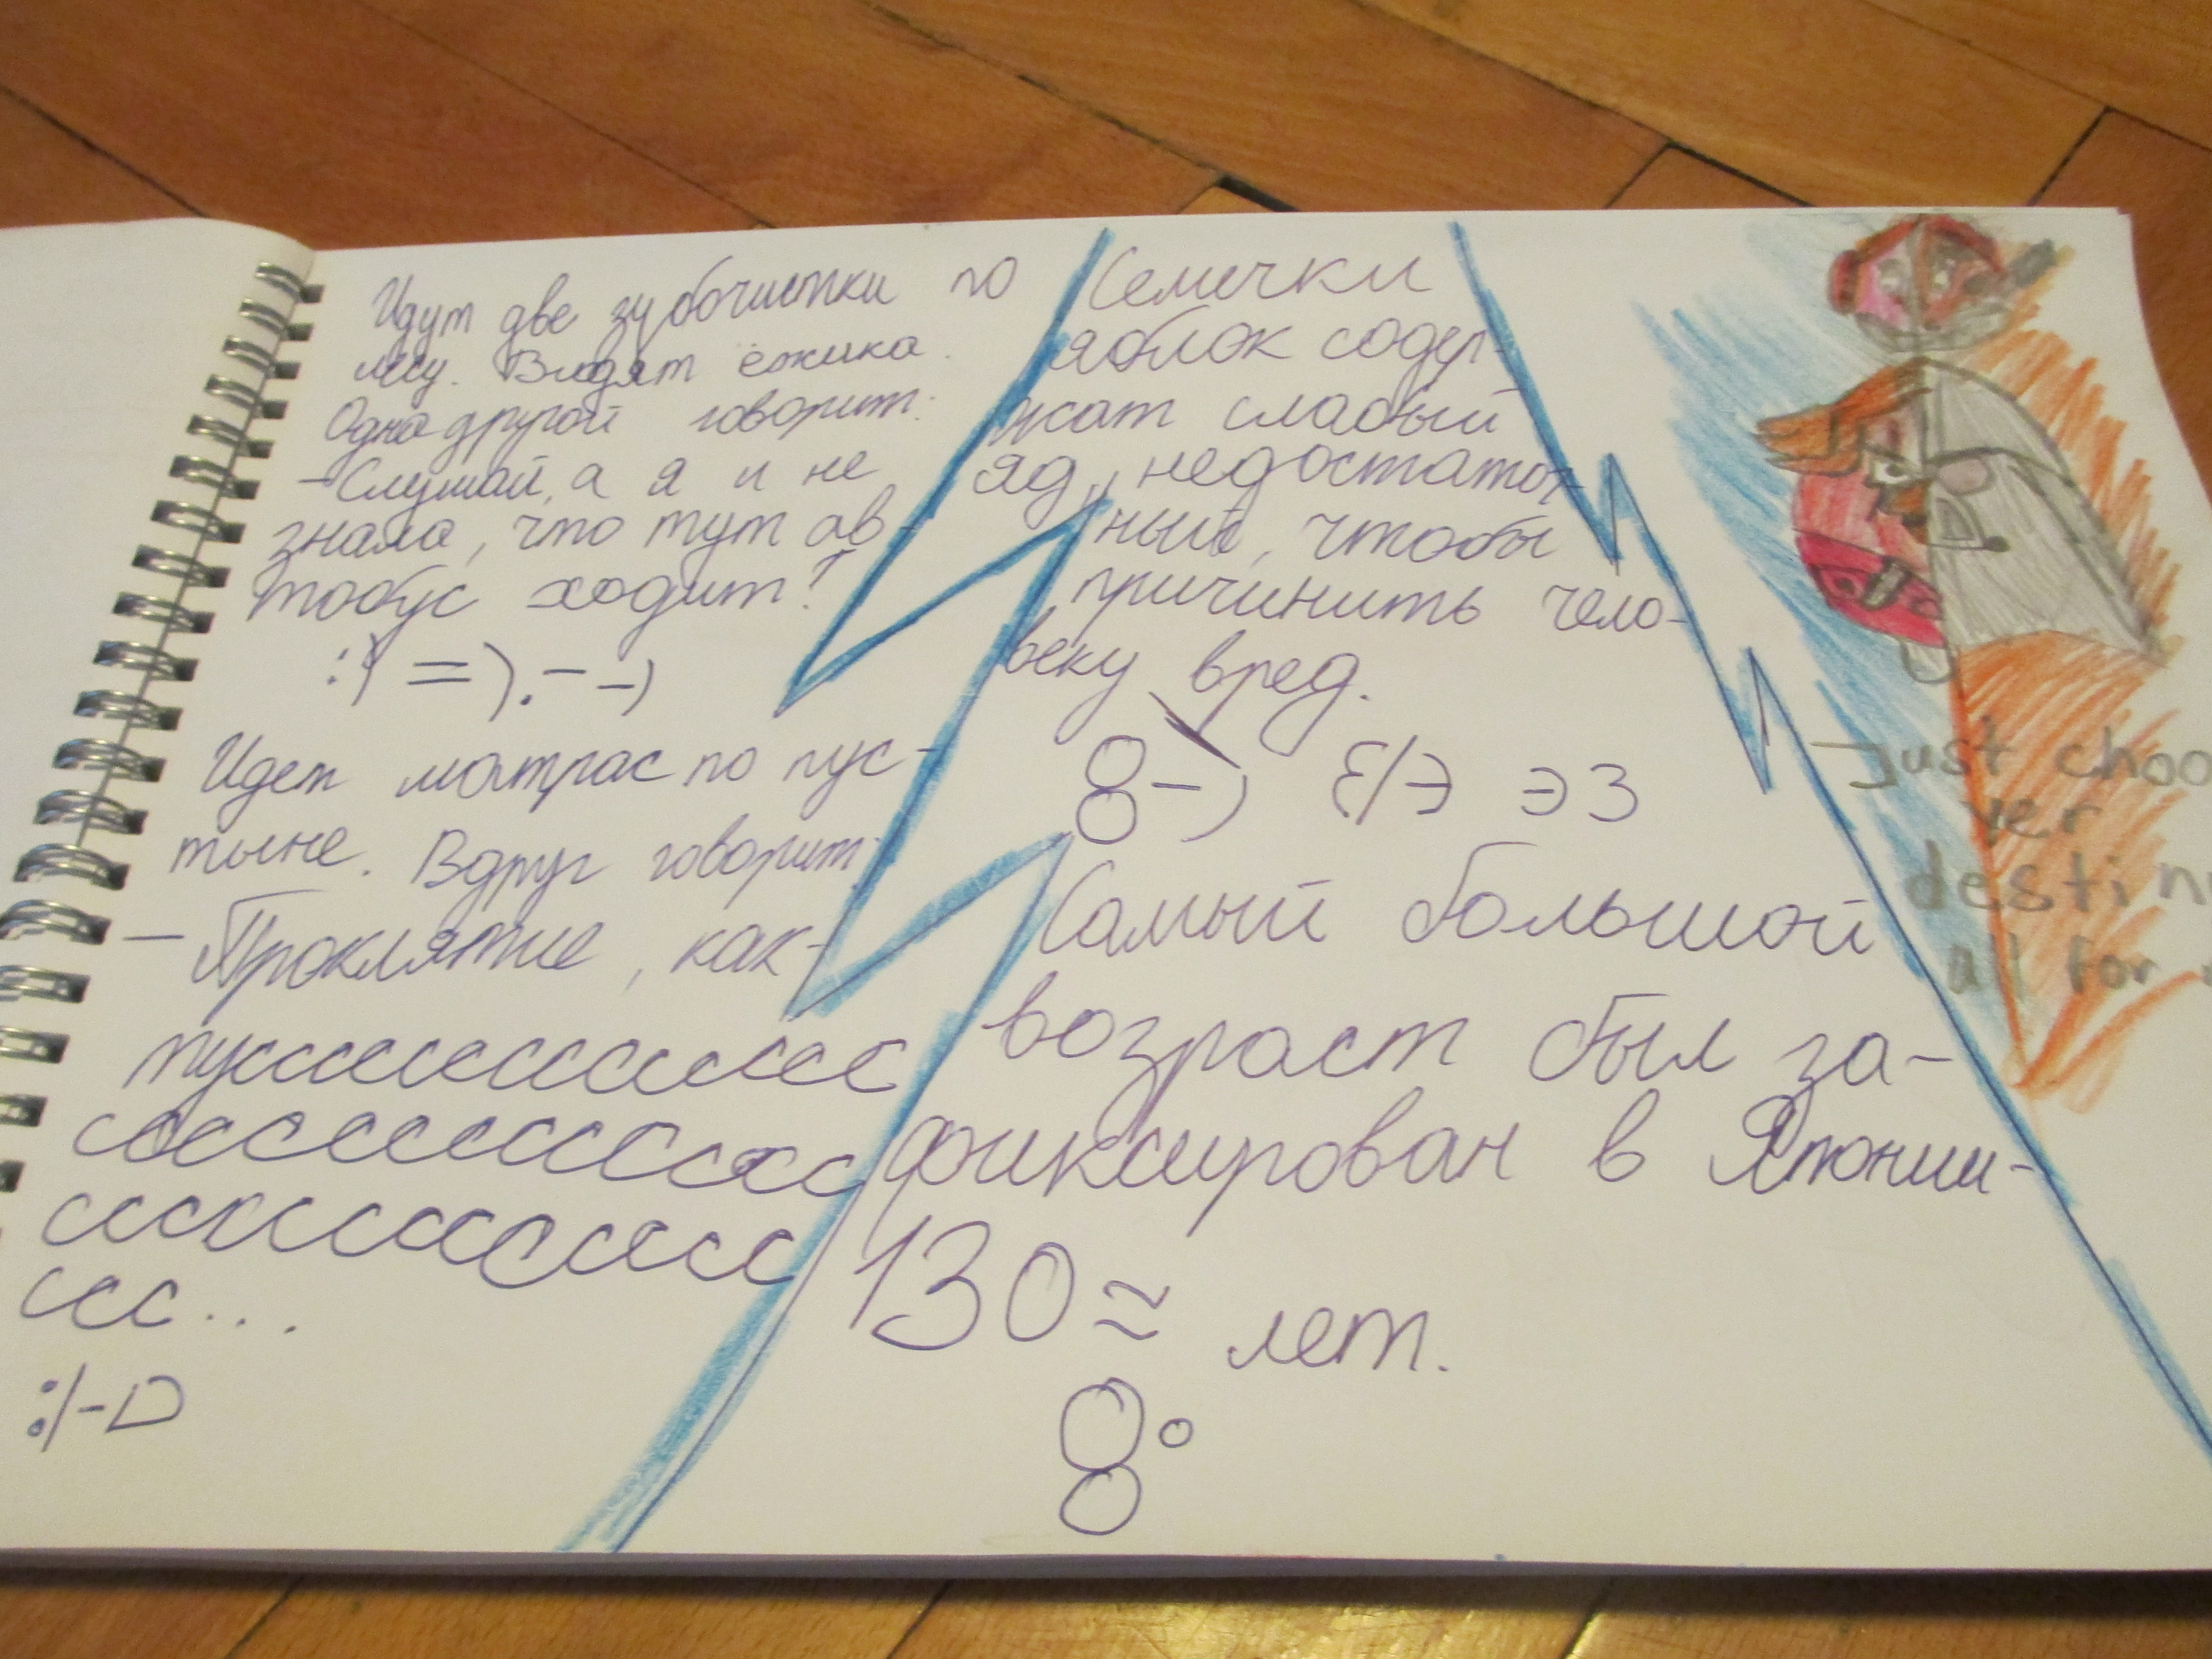 Идут две зубочистки по
лесу. Видят ёжика.
Одна другой говорит:
-Слушай, а я и не
знала, что тут ав-
тобус ходит!
:) =) .--)
Идет матрас по пус-
тыне. Вдруг говорит:
- Проклятие, как-
тусссссссссссссс
ссссссссссссссс
сссссссссссссс
ссс...
:/-D
Семечки
яблок содер-
жат слабый
яд, недостаточ-
ный, чтобы
причинить чело-
веку вред.
8-) {/Э ЭЗ
Самый большой
возраст был за-
фиксирован в Японии-
130≈ лет.
8°
Just choo
destin
all for